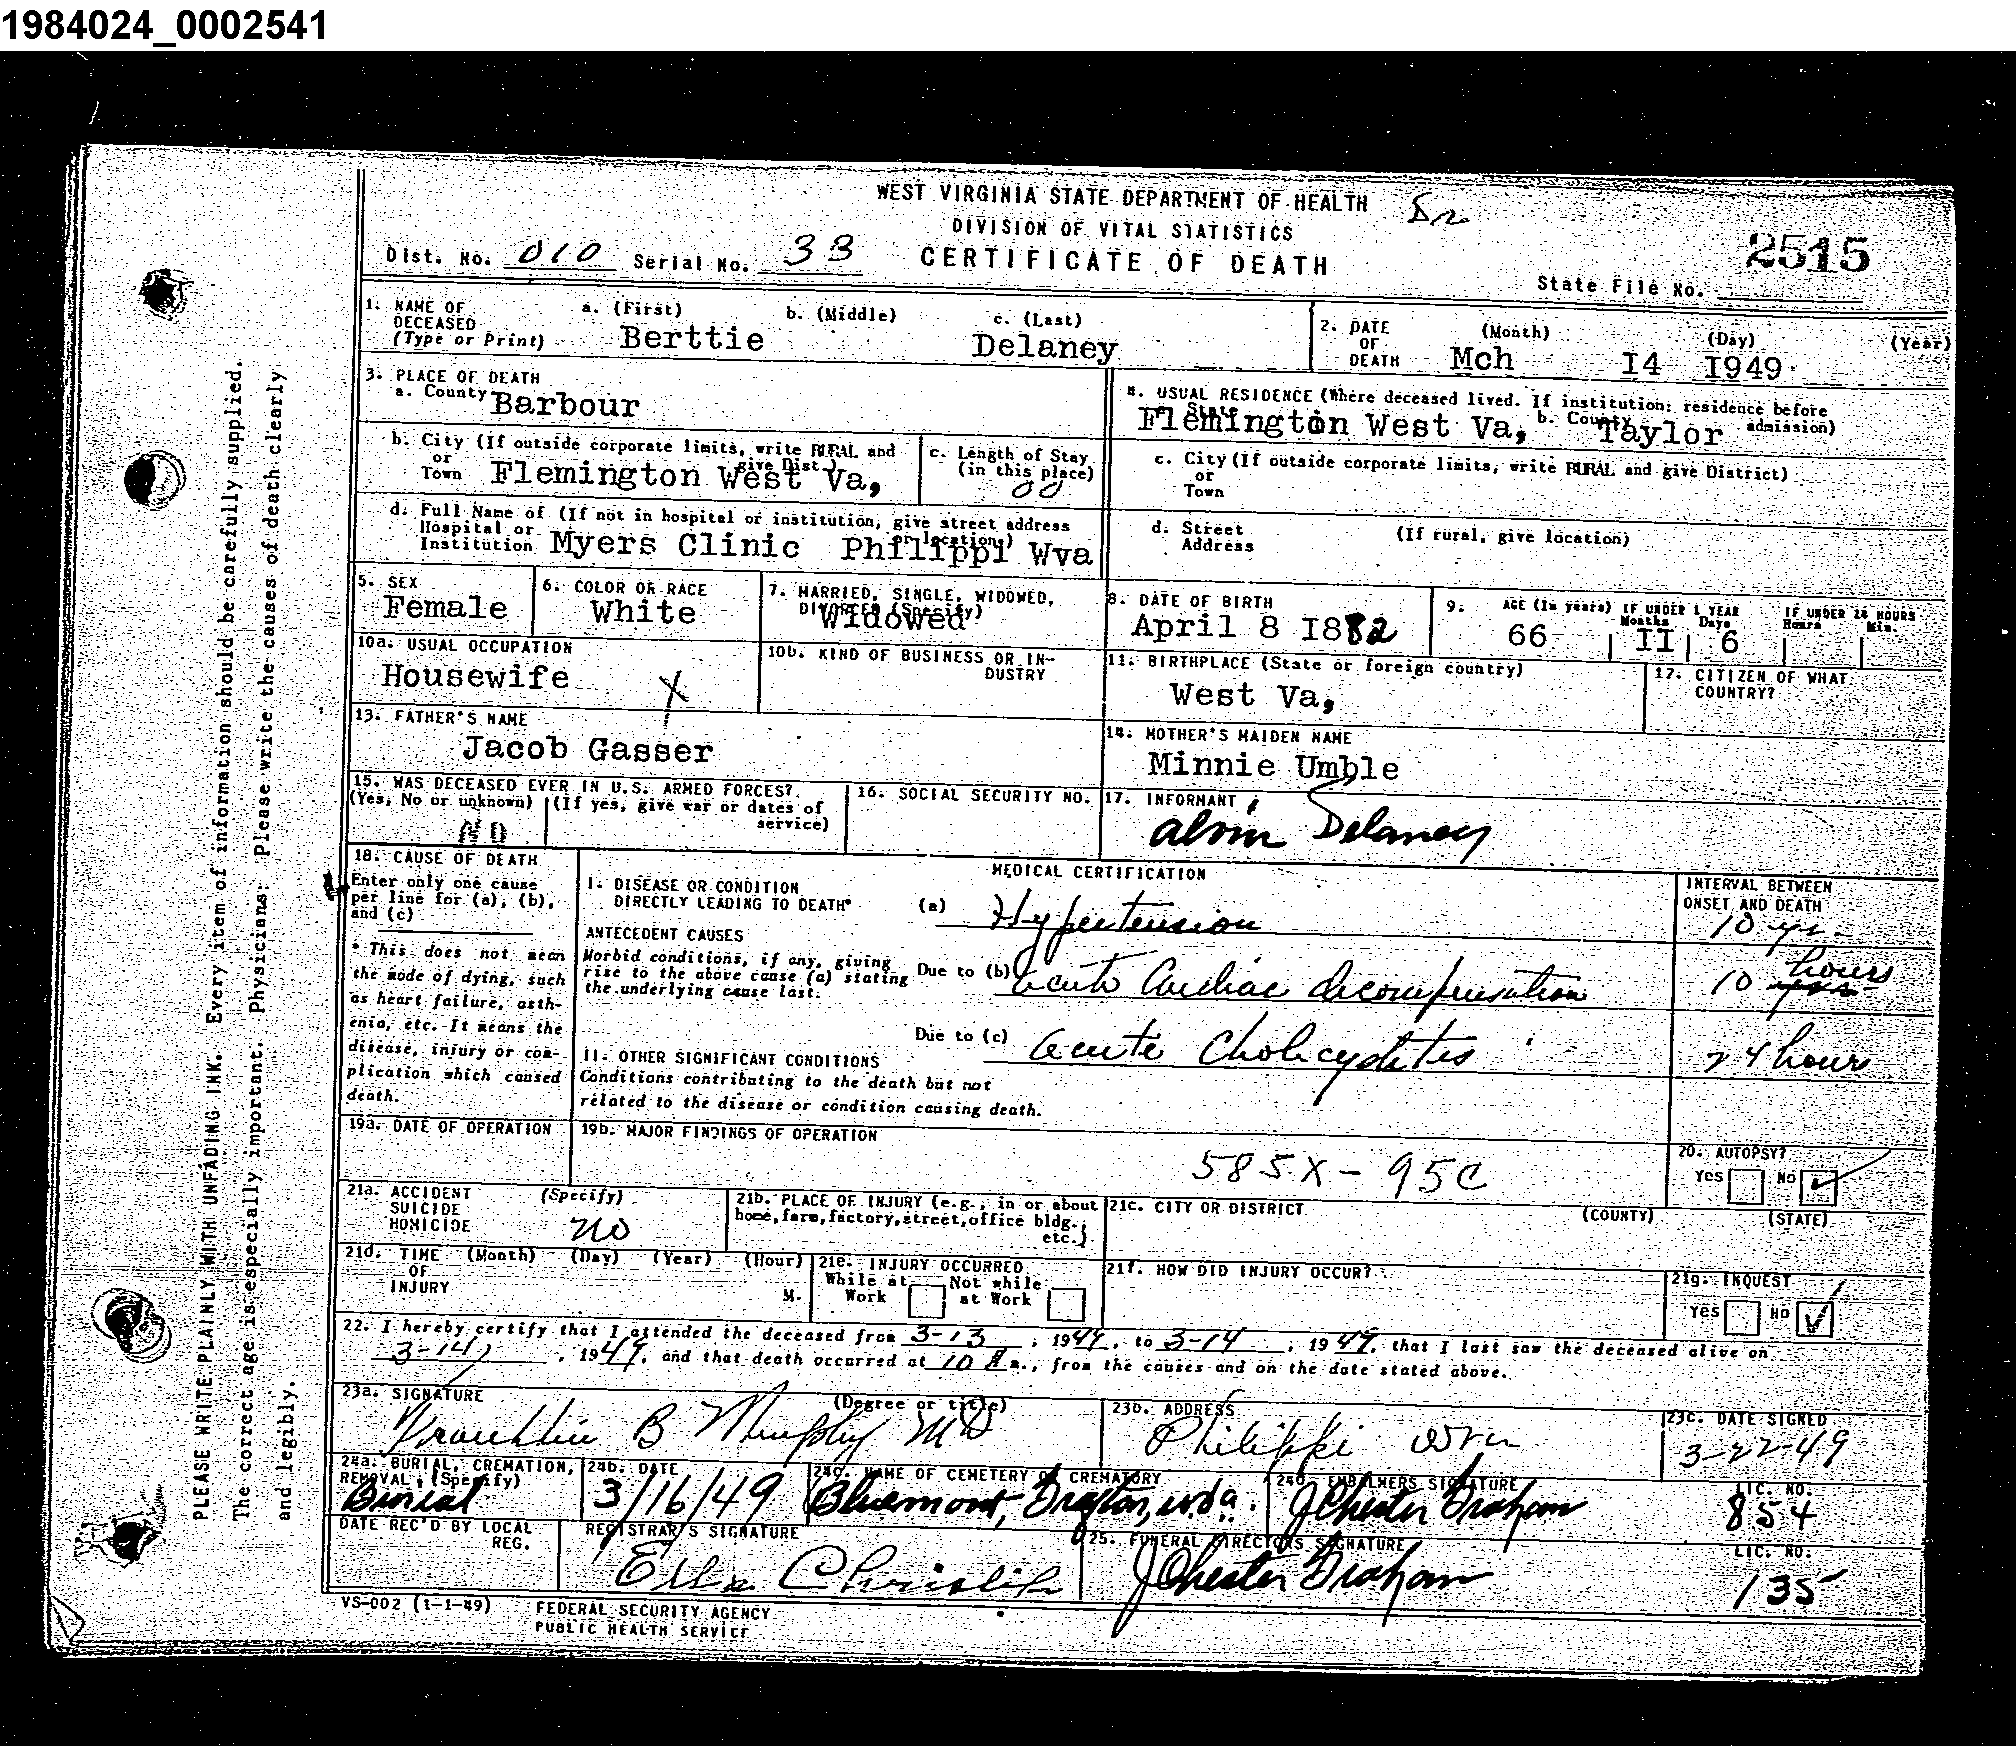 1984024_0002541
WEST VIRGINIA STATE DEPARTMENT OF HEALTH
DIVISION OF VITAL STATISTICS
CERTIFICATE OF DEATH
Dist. No. 010 Serial No. 33
2515
State File No.
1. NAME OF DECEASED (Type or Print)
a. (First) Berttie
b. (Middle)
c. (Last) Delaney
2. DATE OF DEATH (Month) (Day) (Year)
Mch I4 I949
3. PLACE OF DEATH
a. County Barbour
b. City (If outside corporate limits, write RURAL and give Dist.)
or Town Flemington West Va,
c. Length of Stay (in this place)
00
d. Full Name of (If not in hospital or institution, give street address or location)
Hospital or Institution Myers Clinic Philippi Wva
4. USUAL RESIDENCE (Where deceased lived. If institution: residence before admission)
a. State Flemington West Va, b. County Taylor
c. City (If outside corporate limits, write RURAL and give District)
or Town
d. Street Address (If rural, give location)
5. SEX
Female
6. COLOR OR RACE
White
7. MARRIED, SINGLE, WIDOWED, DIVORCED (Specify)
Widowed
8. DATE OF BIRTH
April 8 I882
9. AGE (In years) IF UNDER 1 YEAR Months Days IF UNDER 24 HOURS Hours Min.
66 II 6
10a. USUAL OCCUPATION
Housewife X
10b. KIND OF BUSINESS OR INDUSTRY
11. BIRTHPLACE (State or foreign country)
West Va,
12. CITIZEN OF WHAT COUNTRY?
13. FATHER'S NAME
Jacob Gasser
14. MOTHER'S MAIDEN NAME
Minnie Umble
15. WAS DECEASED EVER IN U.S. ARMED FORCES?
(Yes, No or unknown) (If yes, give war or dates of service)
NO
16. SOCIAL SECURITY NO.
17. INFORMANT
Alvin Delaney
18. CAUSE OF DEATH
Enter only one cause per line for (a), (b), and (c)
* This does not mean the mode of dying, such as heart failure, asthenia, etc. It means the disease, injury or complication which caused death.
MEDICAL CERTIFICATION
INTERVAL BETWEEN ONSET AND DEATH
I. DISEASE OR CONDITION DIRECTLY LEADING TO DEATH*
(a) Hypertension 10 yr.
ANTECEDENT CAUSES
Morbid conditions, if any, giving rise to the above cause (a) stating the underlying cause last.
Due to (b) Acute Cardiac decompensation 10 hours
Due to (c) Acute Cholicystitis 24 hours
II. OTHER SIGNIFICANT CONDITIONS
Conditions contributing to the death but not related to the disease or condition causing death.
19a. DATE OF OPERATION
19b. MAJOR FINDINGS OF OPERATION
585X - 95C
20. AUTOPSY?
Yes No
21a. ACCIDENT SUICIDE HOMICIDE (Specify)
No
21b. PLACE OF INJURY (e.g., in or about home, farm, factory, street, office bldg., etc.)
21c. CITY OR DISTRICT (COUNTY) (STATE)
21d. TIME OF INJURY (Month) (Day) (Year) (Hour) M.
21e. INJURY OCCURRED
While at Work Not while at Work
21f. HOW DID INJURY OCCUR?
21g. INQUEST
Yes No
22. I hereby certify that I attended the deceased from 3-13, 1949, to 3-14, 1949, that I last saw the deceased alive on
3-14, 1949, and that death occurred at 10 m., from the causes and on the date stated above.
23a. SIGNATURE (Degree or title)
Franklin B Murphy MD
23b. ADDRESS
Philippi WVa
23c. DATE SIGNED
3-22-49
24a. BURIAL, CREMATION, REMOVAL, (Specify)
Burial
24b. DATE
3/16/49
24c. NAME OF CEMETERY OR CREMATORY
Bluemont, Grafton, W.Va.
24d. EMBALMERS SIGNATURE
J Chester Graham
LIC. NO.
854
DATE REC'D BY LOCAL REG.
REGISTRAR'S SIGNATURE
25. FUNERAL DIRECTORS SIGNATURE
J Chester Graham
LIC. NO.
135
VS-002 (1-1-49)
FEDERAL SECURITY AGENCY
PUBLIC HEALTH SERVICE
PLEASE WRITE PLAINLY WITH UNFADING INK. Every item of information should be carefully supplied.
The correct age is especially important. Physicians: Please write the causes of death clearly
and legibly.